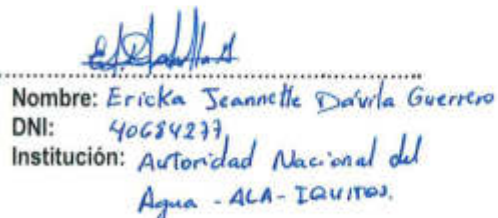 Nombre: Ericka Jeannette Dávila Guerrero
DNI: 40684277
Institución: Autoridad Nacional del
Agua - ALA - IQUITOS.